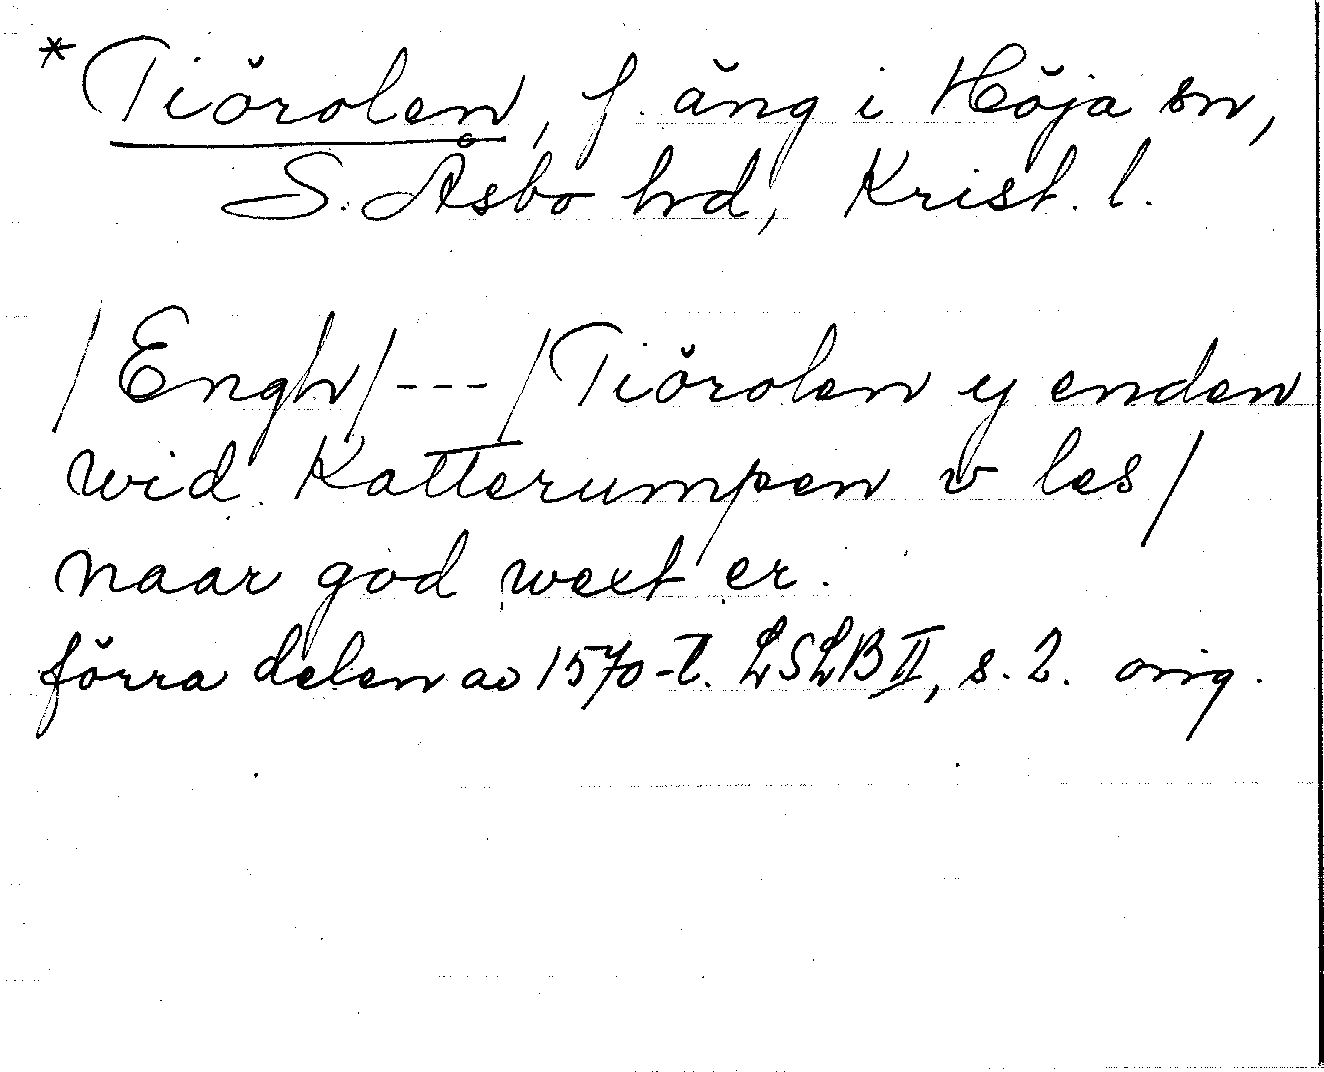 *Tiörolen, f. äng i Höja sn,
S. Åsbo hd, Krist. l.
/Engh/---/Tiörolen y enden
wid Katterumpen v les/
naar god wext er.
förra delen av 1570-t. LSLB II, s. 2. orig.